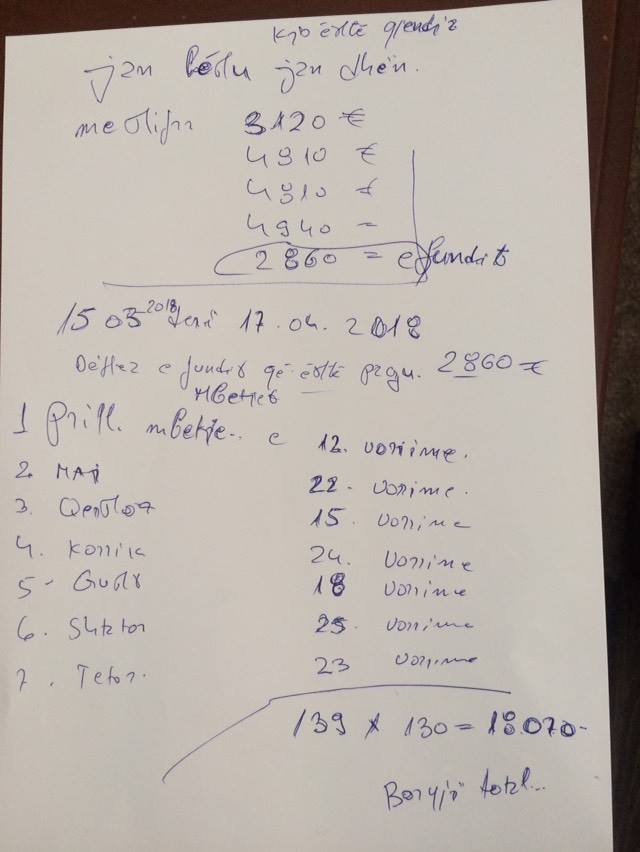 kjo është gjendja
jan bëstu jan dhën.
3120 €
4910 €
4910 €
4940 =
2860 = e fundit
15 03 2018 deri 17.04.2018
e fundit që është pagu. 2860 €
mbetjet
1 Prill. mbetje.. e 12. vonime.
2. Maj 22. vonime.
3. Qershor 15. vonime
4. Korrik 24. vonime
5- Gusht 18 vonime
6. Shtator 25. vonime
7. Tetor. 23 vonime
139 x 130 = 18.070-
Borxji total...